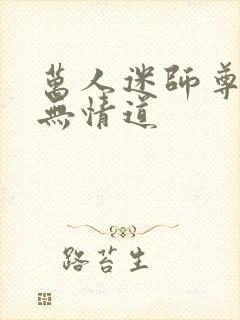 萬人迷師尊
無情道
路苔生